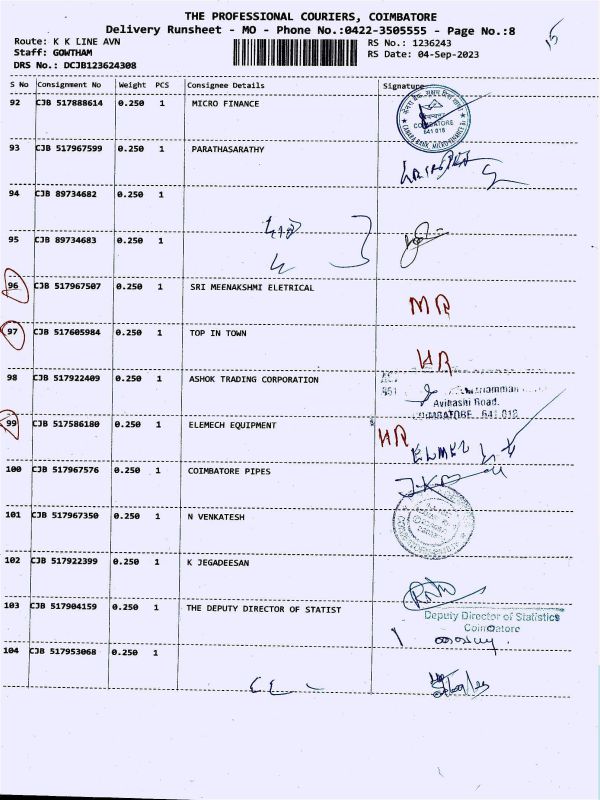 THE PROFESSIONAL COURIERS, COIMBATORE
Delivery Runsheet - MO - Phone No.:0422-3505555 - Page No.:8
Route: K K LINE AVN RS No.: 1236243
Staff: GOWTHAM RS Date: 04-Sep-2023
DRS No.: DCJB123624308
S No Consignment No Weight PCS Consignee Details Signature
92 CJB 517888614 0.250 1 MICRO FINANCE
COIMBATORE
641 018
93 CJB 517967599 0.250 1 PARATHASARATHY
94 CJB 89734682 0.250 1
95 CJB 89734683 0.250 1
96 CJB 517967507 0.250 1 SRI MEENAKSHMI ELETRICAL
97 CJB 517605984 0.250 1 TOP IN TOWN
98 CJB 517922409 0.250 1 ASHOK TRADING CORPORATION
Avinashi Road.
COIMBATORE 641 018
99 CJB 517586180 0.250 1 ELEMECH EQUIPMENT
100 CJB 517967576 0.250 1 COIMBATORE PIPES
101 CJB 517967350 0.250 1 N VENKATESH
102 CJB 517922399 0.250 1 K JEGADEESAN
103 CJB 517904159 0.250 1 THE DEPUTY DIRECTOR OF STATIST
Deputy Director of Statistics
Coimbatore
104 CJB 517953068 0.250 1